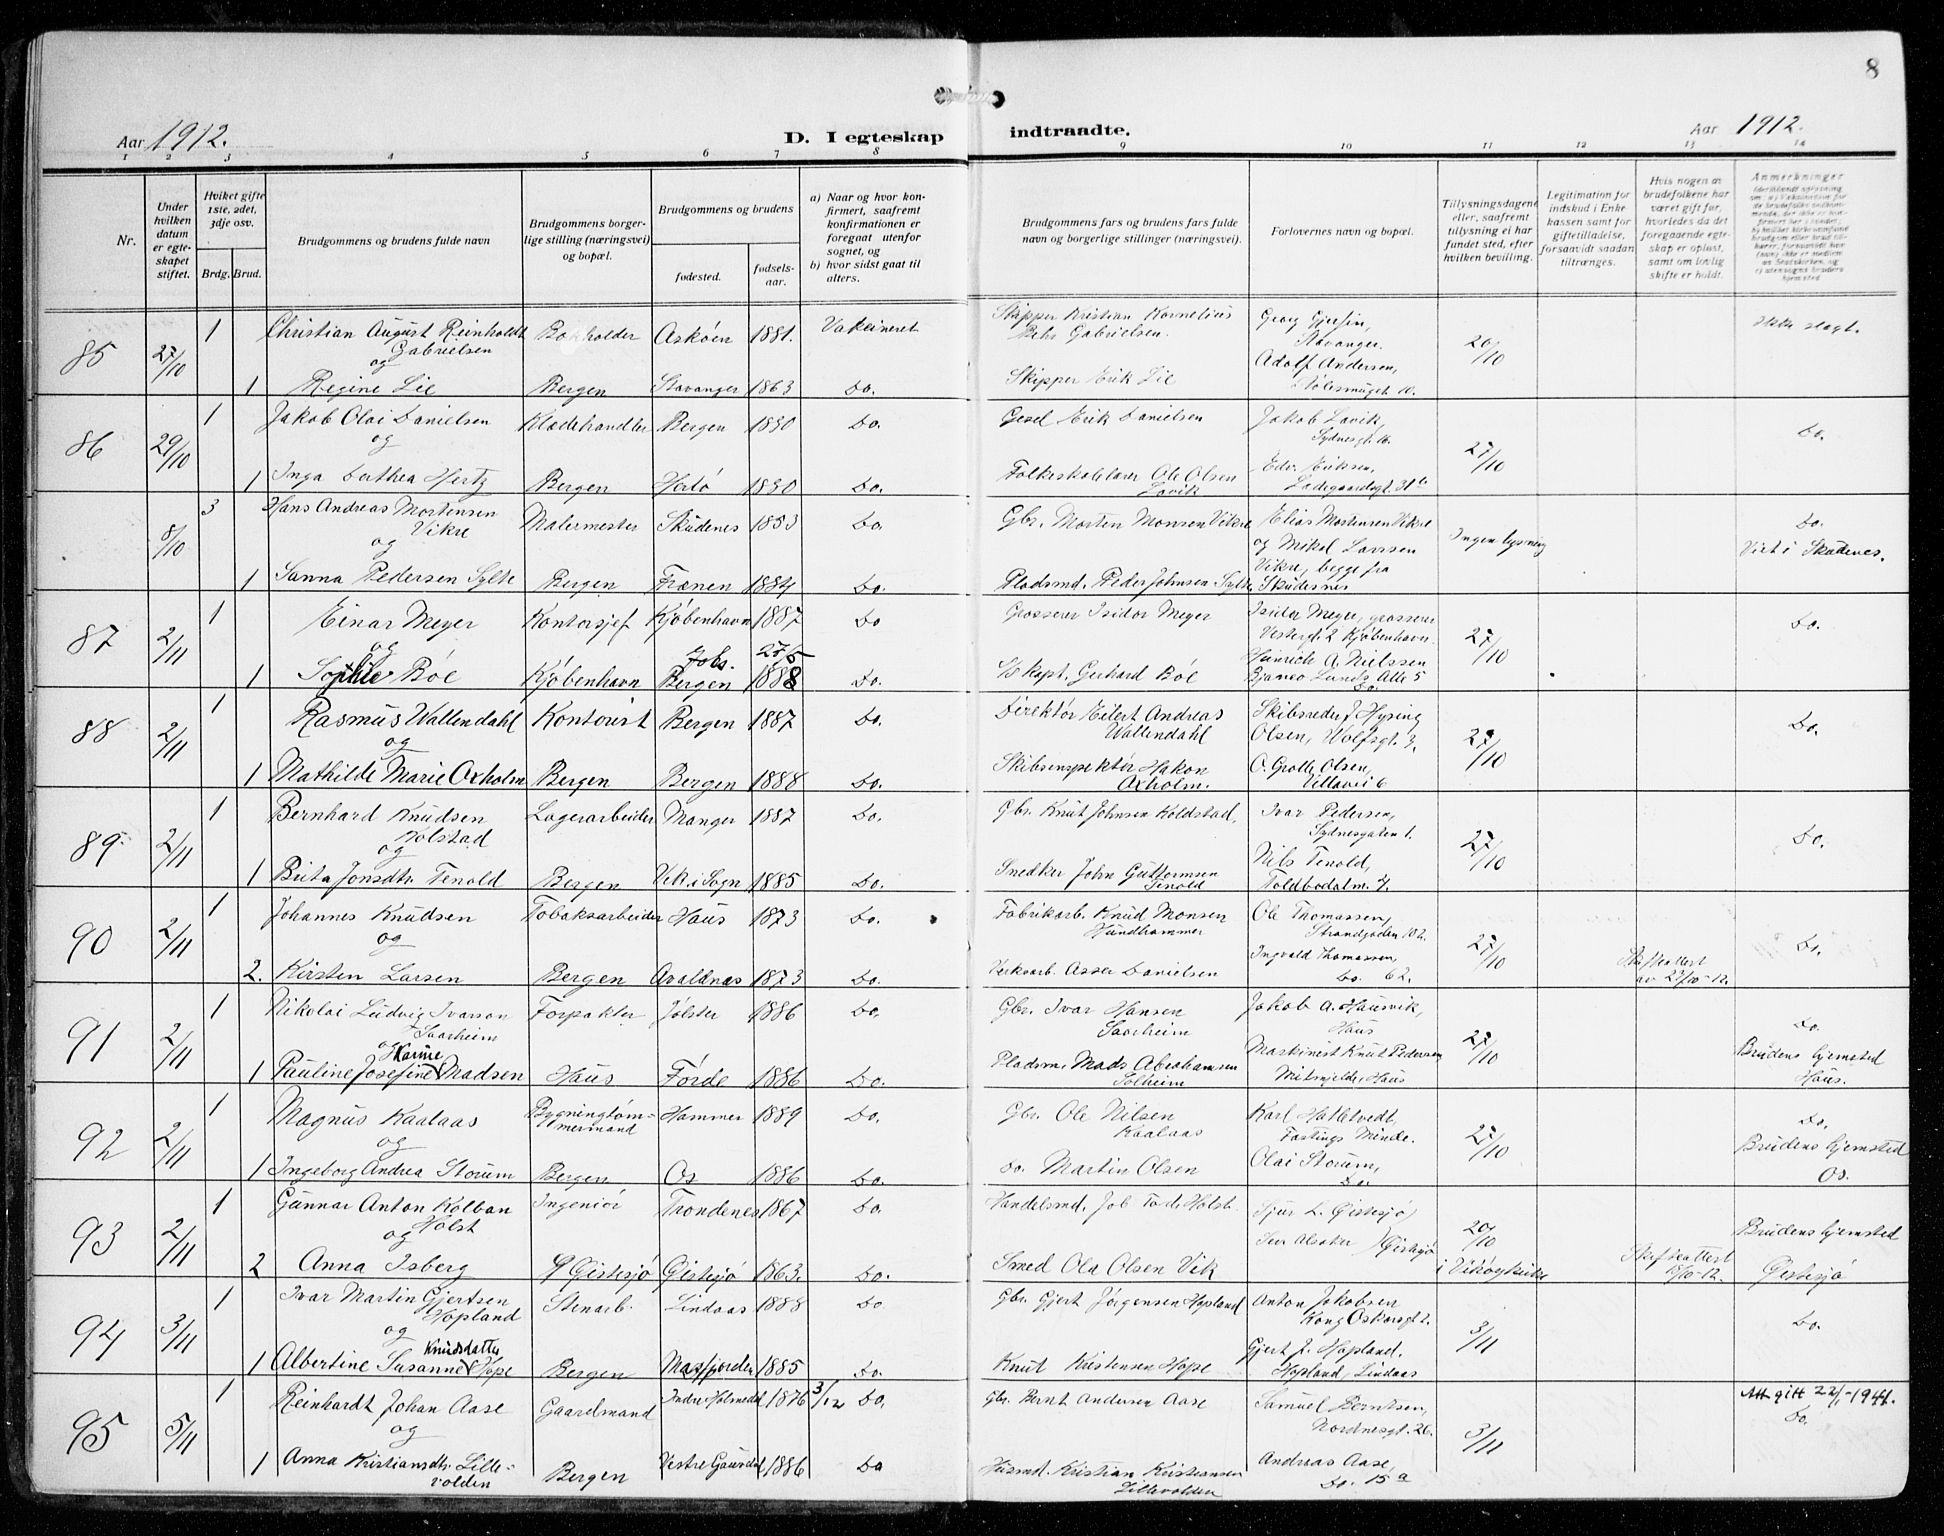 8
Aar 1912.
D. I egteskap indtraadte.
Aar 1912.
1 2 3 4 5 6 7 8 9 10 11 12 13 14
Nr.
Under hvilken datum er egteskapet stiftet.
Hviket gifte 1ste, 2det, 3dje osv.
Brdg. Brud.
Brudgommens og brudens fulde navn
Brudgommens borgerlige stilling (næringsvei) og bopæl.
Brudgommens og brudens
fødested.
fødselsaar.
a) Naar og hvor konfirmert, saafremt konfirmationen er foregaat utenfor sognet, og
b) hvor sidst gaat til alters.
Brudgommens fars og brudens fars fulde navn og borgerlige stillinger (næringsvei).
Forlovernes navn og bopæl.
Tillysningsdagene eller, saafremt tillysning ei har fundet sted, efter hvilken bevilling.
Legitimation for indskud i Enkekassen samt for giftetilladelse, forsaavidt saadan tiltrænges.
Hvis nogen av brudefolkene har været gift før, hvorledes da det foregaaende egteskap er opløst, samt om lovlig skifte er holdt.
Anmerkninger
85 27/10 1 Christian August Reinholdt Gabrielsen Bokholder Askøen 1881. Vakcineret Skipper Kristian Kornelius Gabrielsen. Georg Gjersin, Stavanger. 20/10 Ikke slegt.
og
1 Regine Lie Bergen Stavanger 1863 Do. Skipper Erik Lie Adolf Andersen,
86 29/10 1 Jakob Olai Danielsen Klædehandler Bergen 1890 Do. Erik Danielsen Jakob Lavik, Sydnesgt. 27/10 Do.
og
1 Inga Dorthea Hertz Bergen Herlø 1890 Do. Folkeskolelærer Ole Olsen Lavik Edv. Eriksen, Ladegaardsgt. 31b
8/10 3 Hans Andreas Mortensen Vikre Malermester Skudenes 1853 Do Gbr. Morten Monsen Vikre Elias Mortensen Vikre og Mikal Larssen Vikre, begge fra Skudesnes Ingen lysning Do. Viet i Skudenes.
og
1 Sanna Pedersen Sylte Bergen Frænen 1884 Do. Pladsmd. Peder Johnsen Sylte
87 2/11 1 Einar Meyer Kontorsjef Kjøbenhavn 1887 Do Grosserer Isidor Meyer Isidor Meyer, grosserer Vestergt. 2 Kjøbenhavn. 27/10 Do.
og
1 Sophie Böe Kjøbenhavn Bergen 27/5 1888 Do. Skpt. Gerhard Böe Heinrich A. Nielssen Bjarne Lunds Alle 5
88 2/11 1 Rasmus Wallendahl Kontorist Bergen 1887 Do. Direktør Eilert Andreas Wallendahl Skibsreder J. Hysing Olsen, Wolfsgt. 27/10 Do.
og
1 Mathilde Marie Oxholm Bergen Bergen 1888 Do. Skibsinspektør Hakon Oxholm. O. Grolle Olsen, Villavei 6
89 2/11 1 Bernhard Knudsen Kolstad Lagerarbeider Manger 1887 Do. Gbr. Knut Johnsen Koldstad, Ivar Pedersen, Sydnesgaten 1. 27/10 Do.
og
1 Brita Jonsdtr. Tenold Bergen Vik i Sogn 1885 Do. Snedker John Guttormsen Tenold Nils Tenold, Toldbodalm.
90 2/11 1 Johannes Knudsen Tobaksarbeider Haus 1873 Do. Fabrikarb. Knud Monsen Hundhammer Ole Thomassen, Strandgaden 102. 27/10 Do.
og
2. Kirsten Larsen Bergen Avaldnæs 1873 Do. Verksarb. Asser Danielsen Ingvald Thomassen, Do. 62. Skifteattest av 23/10-12.
91 2/11 1 Nikolai Ludvig Ivarson Saarheim Forpakter Jølster 1886 Do. Gbr. Ivar Hansen Saarheim Jakob A. Hausvik, Haus 27/10 Do.
og
1 Pauline Josefine Karine Madsen Haus Førde 1886 Do. Pladsm. Mads Abrahamsen Solheim Maskinist Knut Pedersen Mitsmjelde, Haus Brudens hjemsted Haus.
92 2/11 1 Magnus Kaalaas Bygningtømmermand Hammer 1889 Do. Gbr. Ole Nilsen Kaalaas Karl Hatletvedt, Fastings Minde. 27/10 Do.
og
1 Ingeborg Andrea Storum Bergen Os 1886 Do. Do. Martin Olsen Olai Storum, Do. Brudens hjemsted Os.
93 2/11 1 Gunnar Anton Kolban Holst Ingeniør Trondenes 1867 Do. Handelsmd. Job Holst Sjur L. Gistesjø 20/10 i Vikøykirke Brudens hjemsted Gistesjø
og
2 Anna Isberg Gistesjö Gistesjö 1863. Do. Smed Ola Olsen Vik Alsaker Gistesjø Skifteattest 15/10-12.
94 3/11 1 Ivar Martin Gjertsen Hopland Stenarb. Lindaas 1888 Do Gbr. Gjert Jørgensen Hopland Anton Jakobsen Kong Oskarsgt 2. 3/11 Do.
og
1 Albertine Susanne Knudsdatter Hope Bergen Masfjorden 1885 Do. Knut Kristensen Hope Gjert J. Hopland. Hopland, Lindaas
95 5/11 1 Reinhardt Johan Aase Gaardmand Indre Holmedal 1876 3/12 Do. Gbr. Bernt Andersen Aase Samuel Berntsen, Nordnesgt. 26. 3/11 Att gitt 22/1-1941. Do.
og
1 Anna Kristiansdtr. Lillevolden Bergen Vestre Gausdal 1886 Do Husmd. Kristian Kristiansen Lillevolden Andreas Aase, Do. 15a